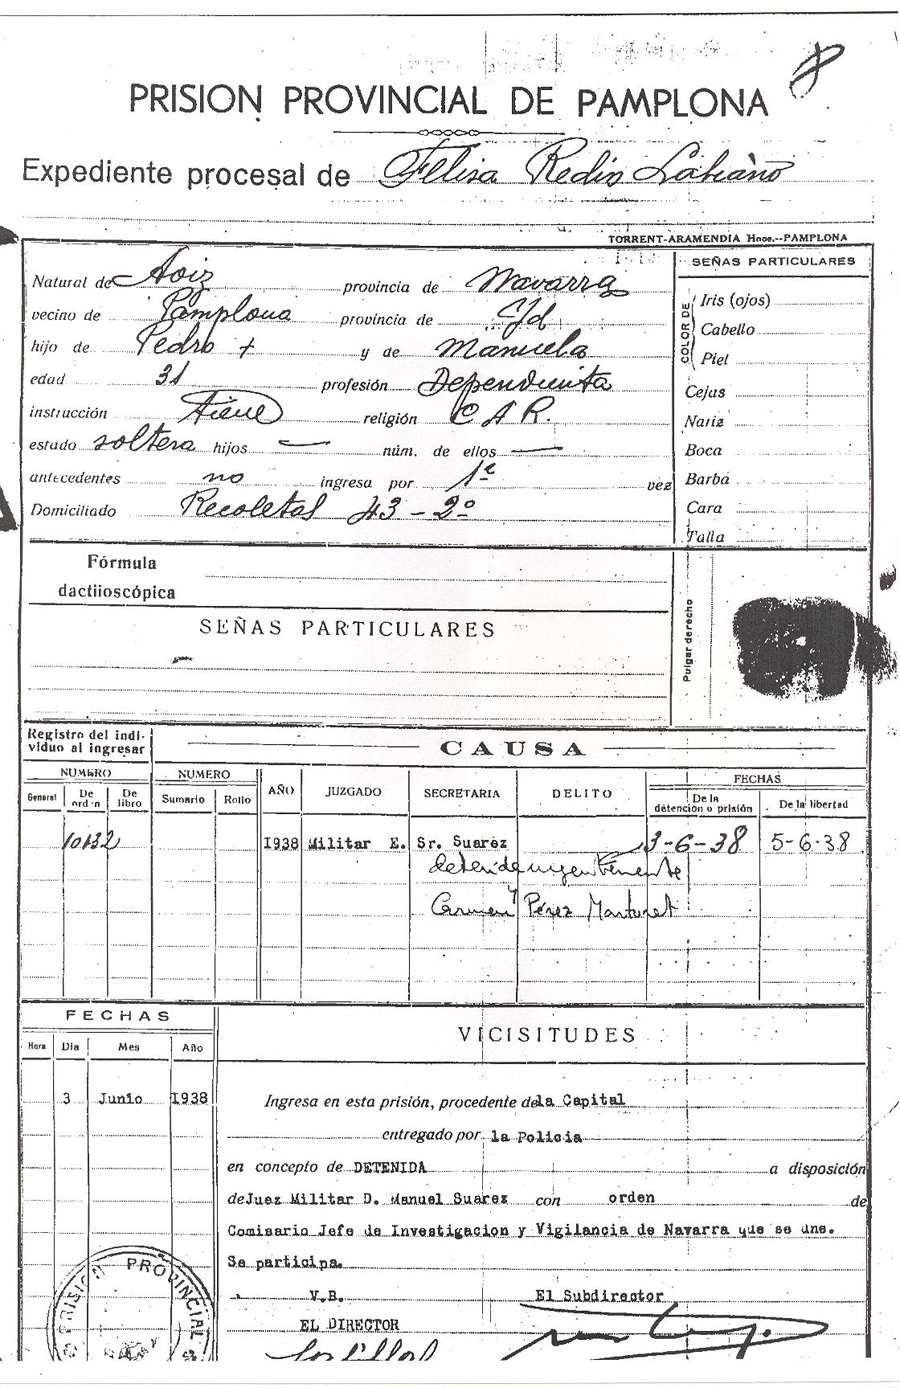 8
PRISION PROVINCIAL DE PAMPLONA
Expediente procesal de Felisa Redin Labiano
TORRENT-ARAMENDIA Hnos.--PAMPLONA
Natural de Aoiz provincia de Navarra
vecino de Pamplona provincia de Id
hijo de Pedro + y de Manuela
edad 31 profesión Dependienta
instrucción Tiene religión C A R.
estado soltera hijos — núm. de ellos —
antecedentes no ingresa por 1ª vez
Domiciliado Recoletas 43 - 2º
SEÑAS PARTICULARES
COLOR DE
Iris (ojos)
Cabello
Piel
Cejas
Nariz
Boca
Barba
Cara
Talla
Fórmula
dactiloscópica
SEÑAS PARTICULARES
Pulgar derecho
Registro del indi-
viduo al ingresar
CAUSA
NUMERO NUMERO AÑO JUZGADO SECRETARIA DELITO FECHAS
General De orden De libro Sumario Rollo De la detención o prisión De la libertad
10132 1938 Militar E. Sr. Suarez 3-6-38 5-6-38
y
Carmen Pérez
FECHAS
Hora Dia Mes Año
VICISITUDES
3 Junio 1938 Ingresa en esta prisión, procedente de la Capital
entregado por la Policia
en concepto de DETENIDA a disposición
de Juez Militar D. Manuel Suarez con orden de
Comisario Jefe de Investigacion y Vigilancia de Navarra que se une.
Se participa.
V.B. El Subdirector
EL DIRECTOR
PRISION PROVINCIAL